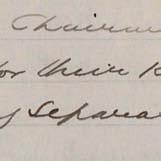 Chairm
for their R
y separa